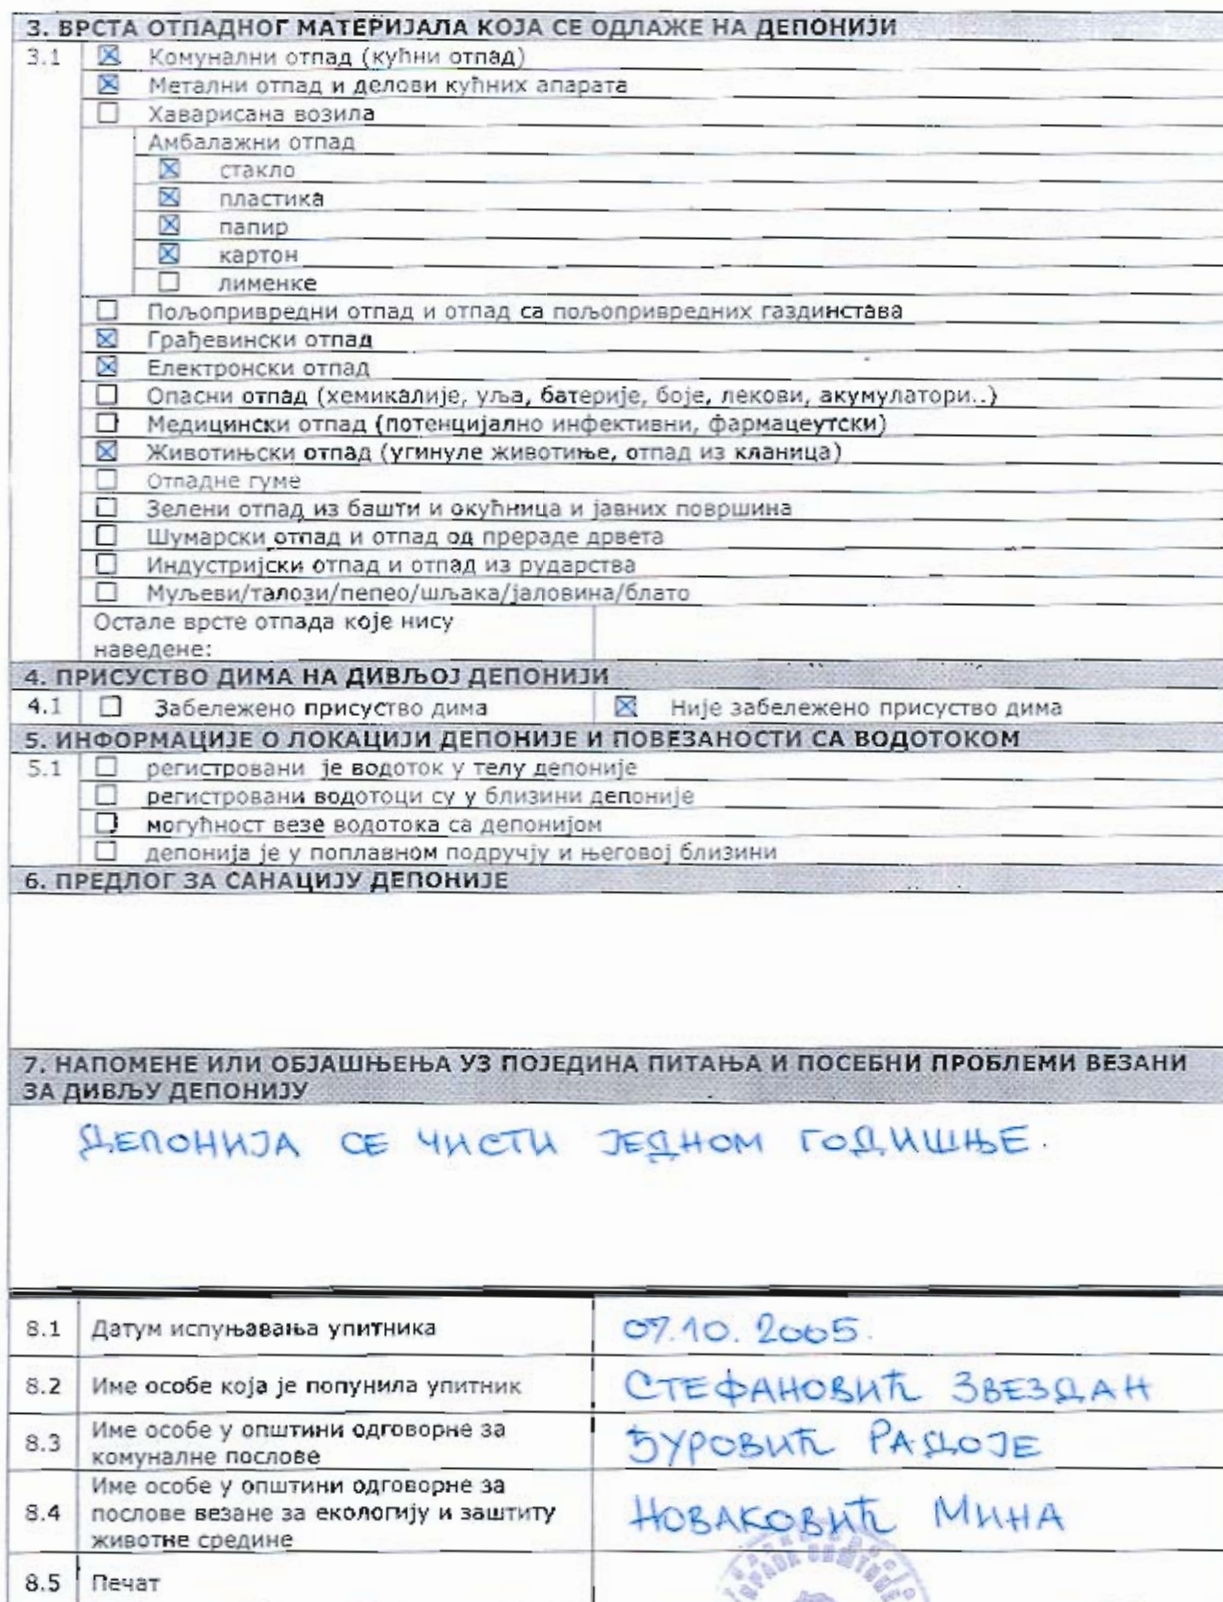 3. ВРСТА ОТПАДНОГ МАТЕРИЈАЛА КОЈА СЕ ОДЛАЖЕ НА ДЕПОНИЈИ
3.1 ☒ Комунални отпад (кућни отпад)
☒ Метални отпад и делови кућних апарата
☐ Хаварисана возила
Амбалажни отпад
☒ стакло
☒ пластика
☒ папир
☒ картон
☐ лименке
☐ Пољопривредни отпад и отпад са пољопривредних газдинстава
☒ Грађевински отпад
☒ Електронски отпад
☐ Опасни отпад (хемикалије, уља, батерије, боје, лекови, акумулатори..)
☐ Медицински отпад (потенцијално инфективни, фармацеутски)
☒ Животињски отпад (угинуле животиње, отпад из кланица)
☐ Отпадне гуме
☐ Зелени отпад из башти и окућница и јавних површина
☐ Шумарски отпад и отпад од прераде дрвета
☐ Индустријски отпад и отпад из рударства
☐ Муљеви/талози/пепео/шљака/јаловина/блато
Остале врсте отпада које нису
наведене:
4. ПРИСУСТВО ДИМА НА ДИВЉОЈ ДЕПОНИЈИ
4.1 ☐ Забележено присуство дима ☒ Није забележено присуство дима
5. ИНФОРМАЦИЈЕ О ЛОКАЦИЈИ ДЕПОНИЈЕ И ПОВЕЗАНОСТИ СА ВОДОТОКОМ
5.1 ☐ регистровани је водоток у телу депоније
☐ регистровани водотоци су у близини депоније
☐ могућност везе водотока са депонијом
☐ депонија је у поплавном подручју и његовој близини
6. ПРЕДЛОГ ЗА САНАЦИЈУ ДЕПОНИЈЕ
7. НАПОМЕНЕ ИЛИ ОБЈАШЊЕЊА УЗ ПОЈЕДИНА ПИТАЊА И ПОСЕБНИ ПРОБЛЕМИ ВЕЗАНИ
ЗА ДИВЉУ ДЕПОНИЈУ
ДЕПОНИЈА СЕ ЧИСТИ ЈЕДНОМ ГОДИШЊЕ.
8.1 Датум испуњавања упитника 07.10.2005.
8.2 Име особе која је попунила упитник СТЕФАНОВИЋ ЗВЕЗДАН
8.3 Име особе у општини одговорне за
комуналне послове ЂУРОВИЋ РАДОЈЕ
8.4 Име особе у општини одговорне за
послове везане за екологију и заштиту
животне средине НОВАКОВИЋ МИНА
8.5 Печат